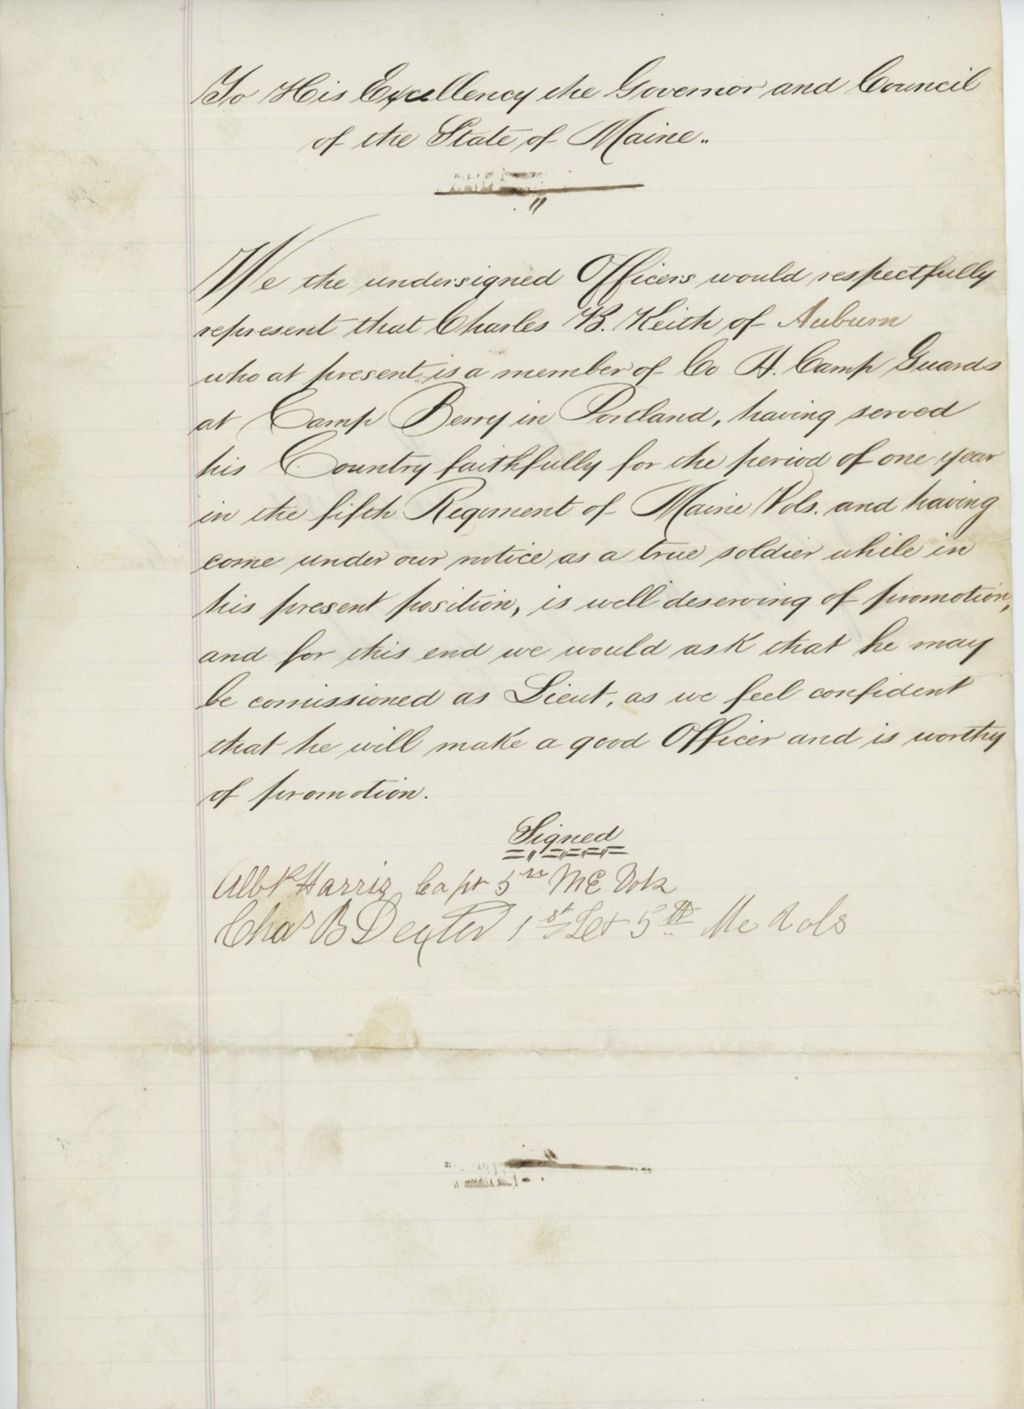 To His Excellency the Governor and Council
of the State of Maine..
We the undersigned Officers would respectfully
represent that Charles B. Keith of Auburn
who at present is a member of Co A. Camp Guards
at Camp Berry in Portland, having served
his Country faithfully for the period of one year
in the fifth Regiment of Maine Vols. and having
come under our notice as a true soldier while in
his present position, is well deserving of promotion,
and for this end we would ask that he may
be comissioned as Lieut, as we feel confident
that he will make a good Officer and is worthy
of promotion.
Signed
Albt Harris Capt 5th ME Vols
Chas B Dexter 1st Let 5th Me Vols